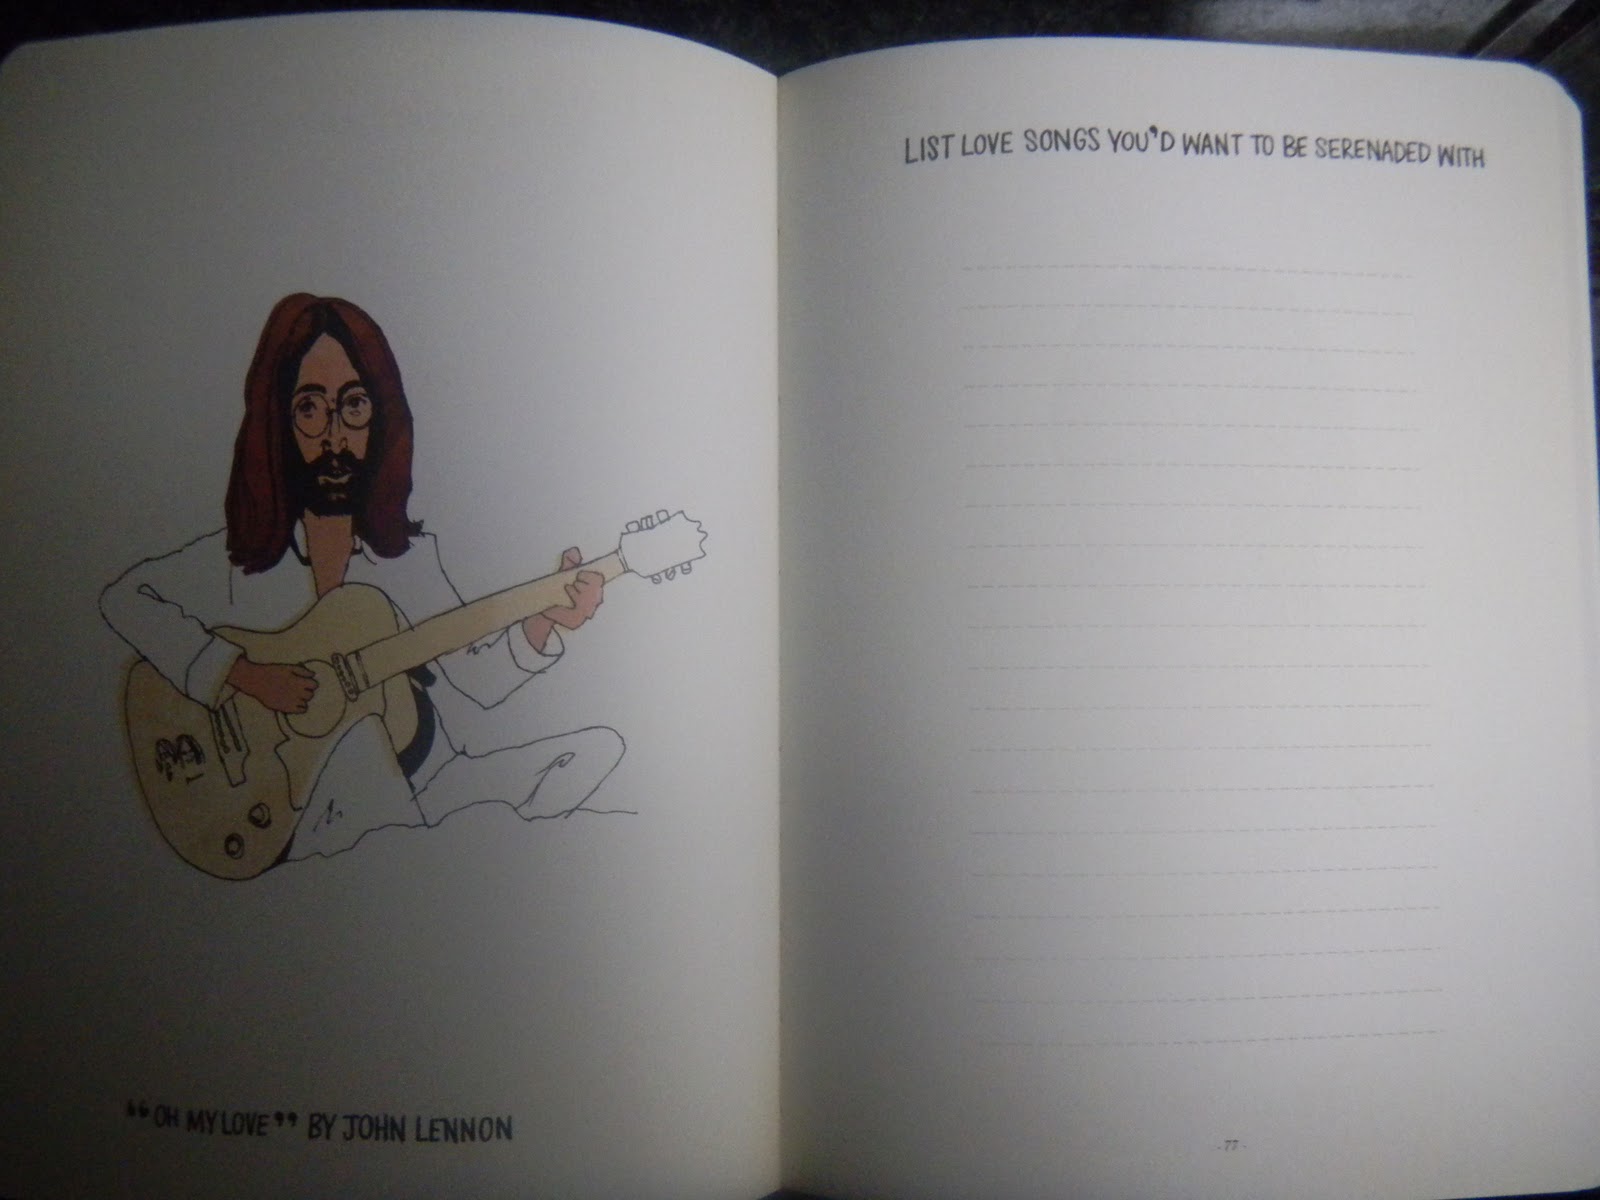 “OH MY LOVE” BY JOHN LENNON
LIST LOVE SONGS YOU’D WANT TO BE SERENADED WITH
- 77 -